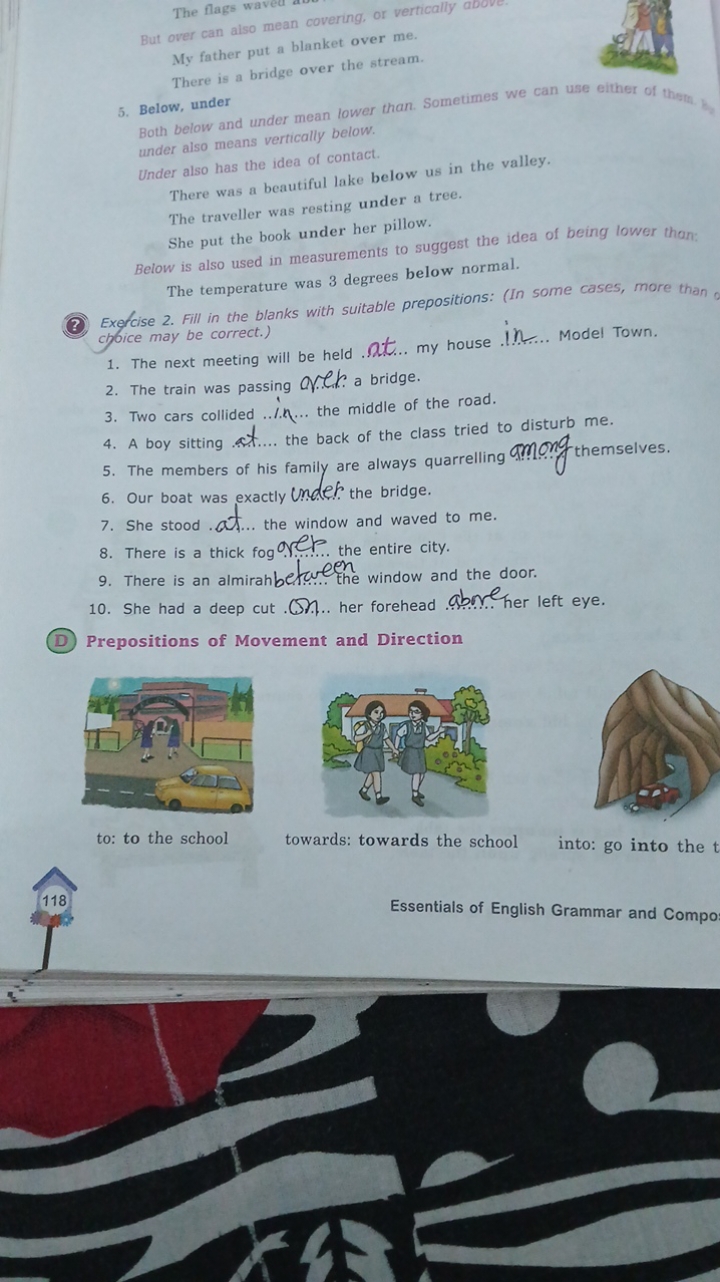 The flags waved
But over can also mean covering, or vertically above.
My father put a blanket over me.
There is a bridge over the stream.
5. Below, under
Both below and under mean lower than. Sometimes we can use either of them.
under also means vertically below.
Under also has the idea of contact.
There was a beautiful lake below us in the valley.
The traveller was resting under a tree.
She put the book under her pillow.
Below is also used in measurements to suggest the idea of being lower than:
The temperature was 3 degrees below normal.
? Exercise 2. Fill in the blanks with suitable prepositions: (In some cases, more than
choice may be correct.)
1. The next meeting will be held .at... my house .in.... Model Town.
2. The train was passing over a bridge.
3. Two cars collided ..in... the middle of the road.
4. A boy sitting .at.... the back of the class tried to disturb me.
5. The members of his family are always quarrelling among themselves.
6. Our boat was exactly under the bridge.
7. She stood .at... the window and waved to me.
8. There is a thick fog over.... the entire city.
9. There is an almirah between the window and the door.
10. She had a deep cut .on.. her forehead above her left eye.
D Prepositions of Movement and Direction
to: to the school towards: towards the school into: go into the t
118
Essentials of English Grammar and Compo